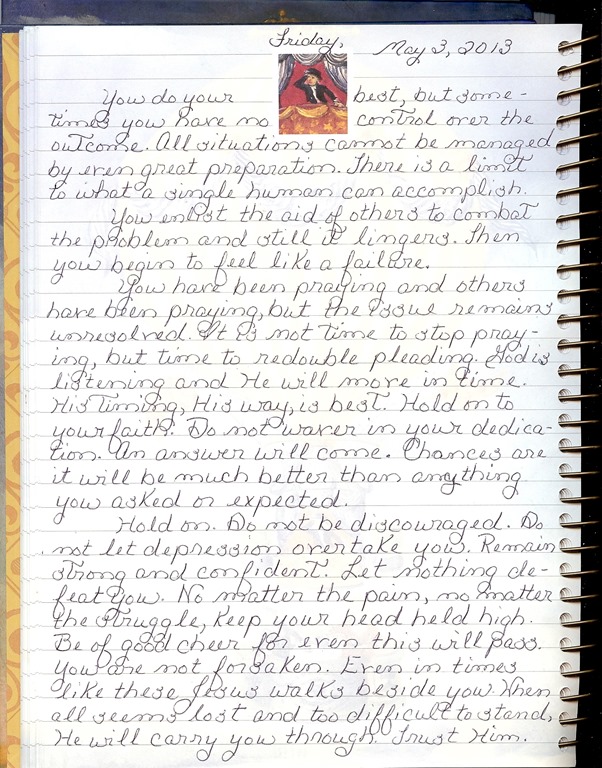 Friday, May 3, 2013
You do your best, but some-
times you have no control over the
outcome. All situations cannot be managed
by even great preparation. There is a limit
to what a single human can accomplish.
You enlist the aid of others to combat
the problem and still it lingers. Then
you begin to feel like a failure.
You have been praying and others
have been praying, but the issue remains
unresolved. It is not time to stop pray-
ing, but time to redouble pleading. God is
listening and He will move in time.
His Timing, His way, is best. Hold on to
your faith. Do not waver in your dedica-
tion. An answer will come. Chances are
it will be much better than anything
you asked or expected.
Hold on. Do not be discouraged. Do
not let depression overtake you. Remain
strong and confident. Let nothing de-
feat you. No matter the pain, no matter
the struggle, keep your head held high.
Be of good cheer for even this will pass.
You are not forsaken. Even in times
like these Jesus walks beside you. When
all seems lost and too difficult to stand,
He will carry you through. Trust Him.